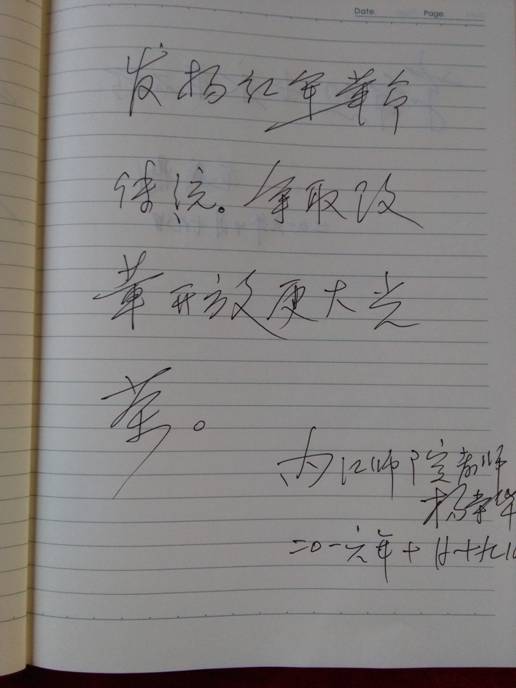 Date Page
发扬红军革命
传统。争取改
革开放更大光
荣。
内江师院教师
杨荣华
二〇一六年十月十九日